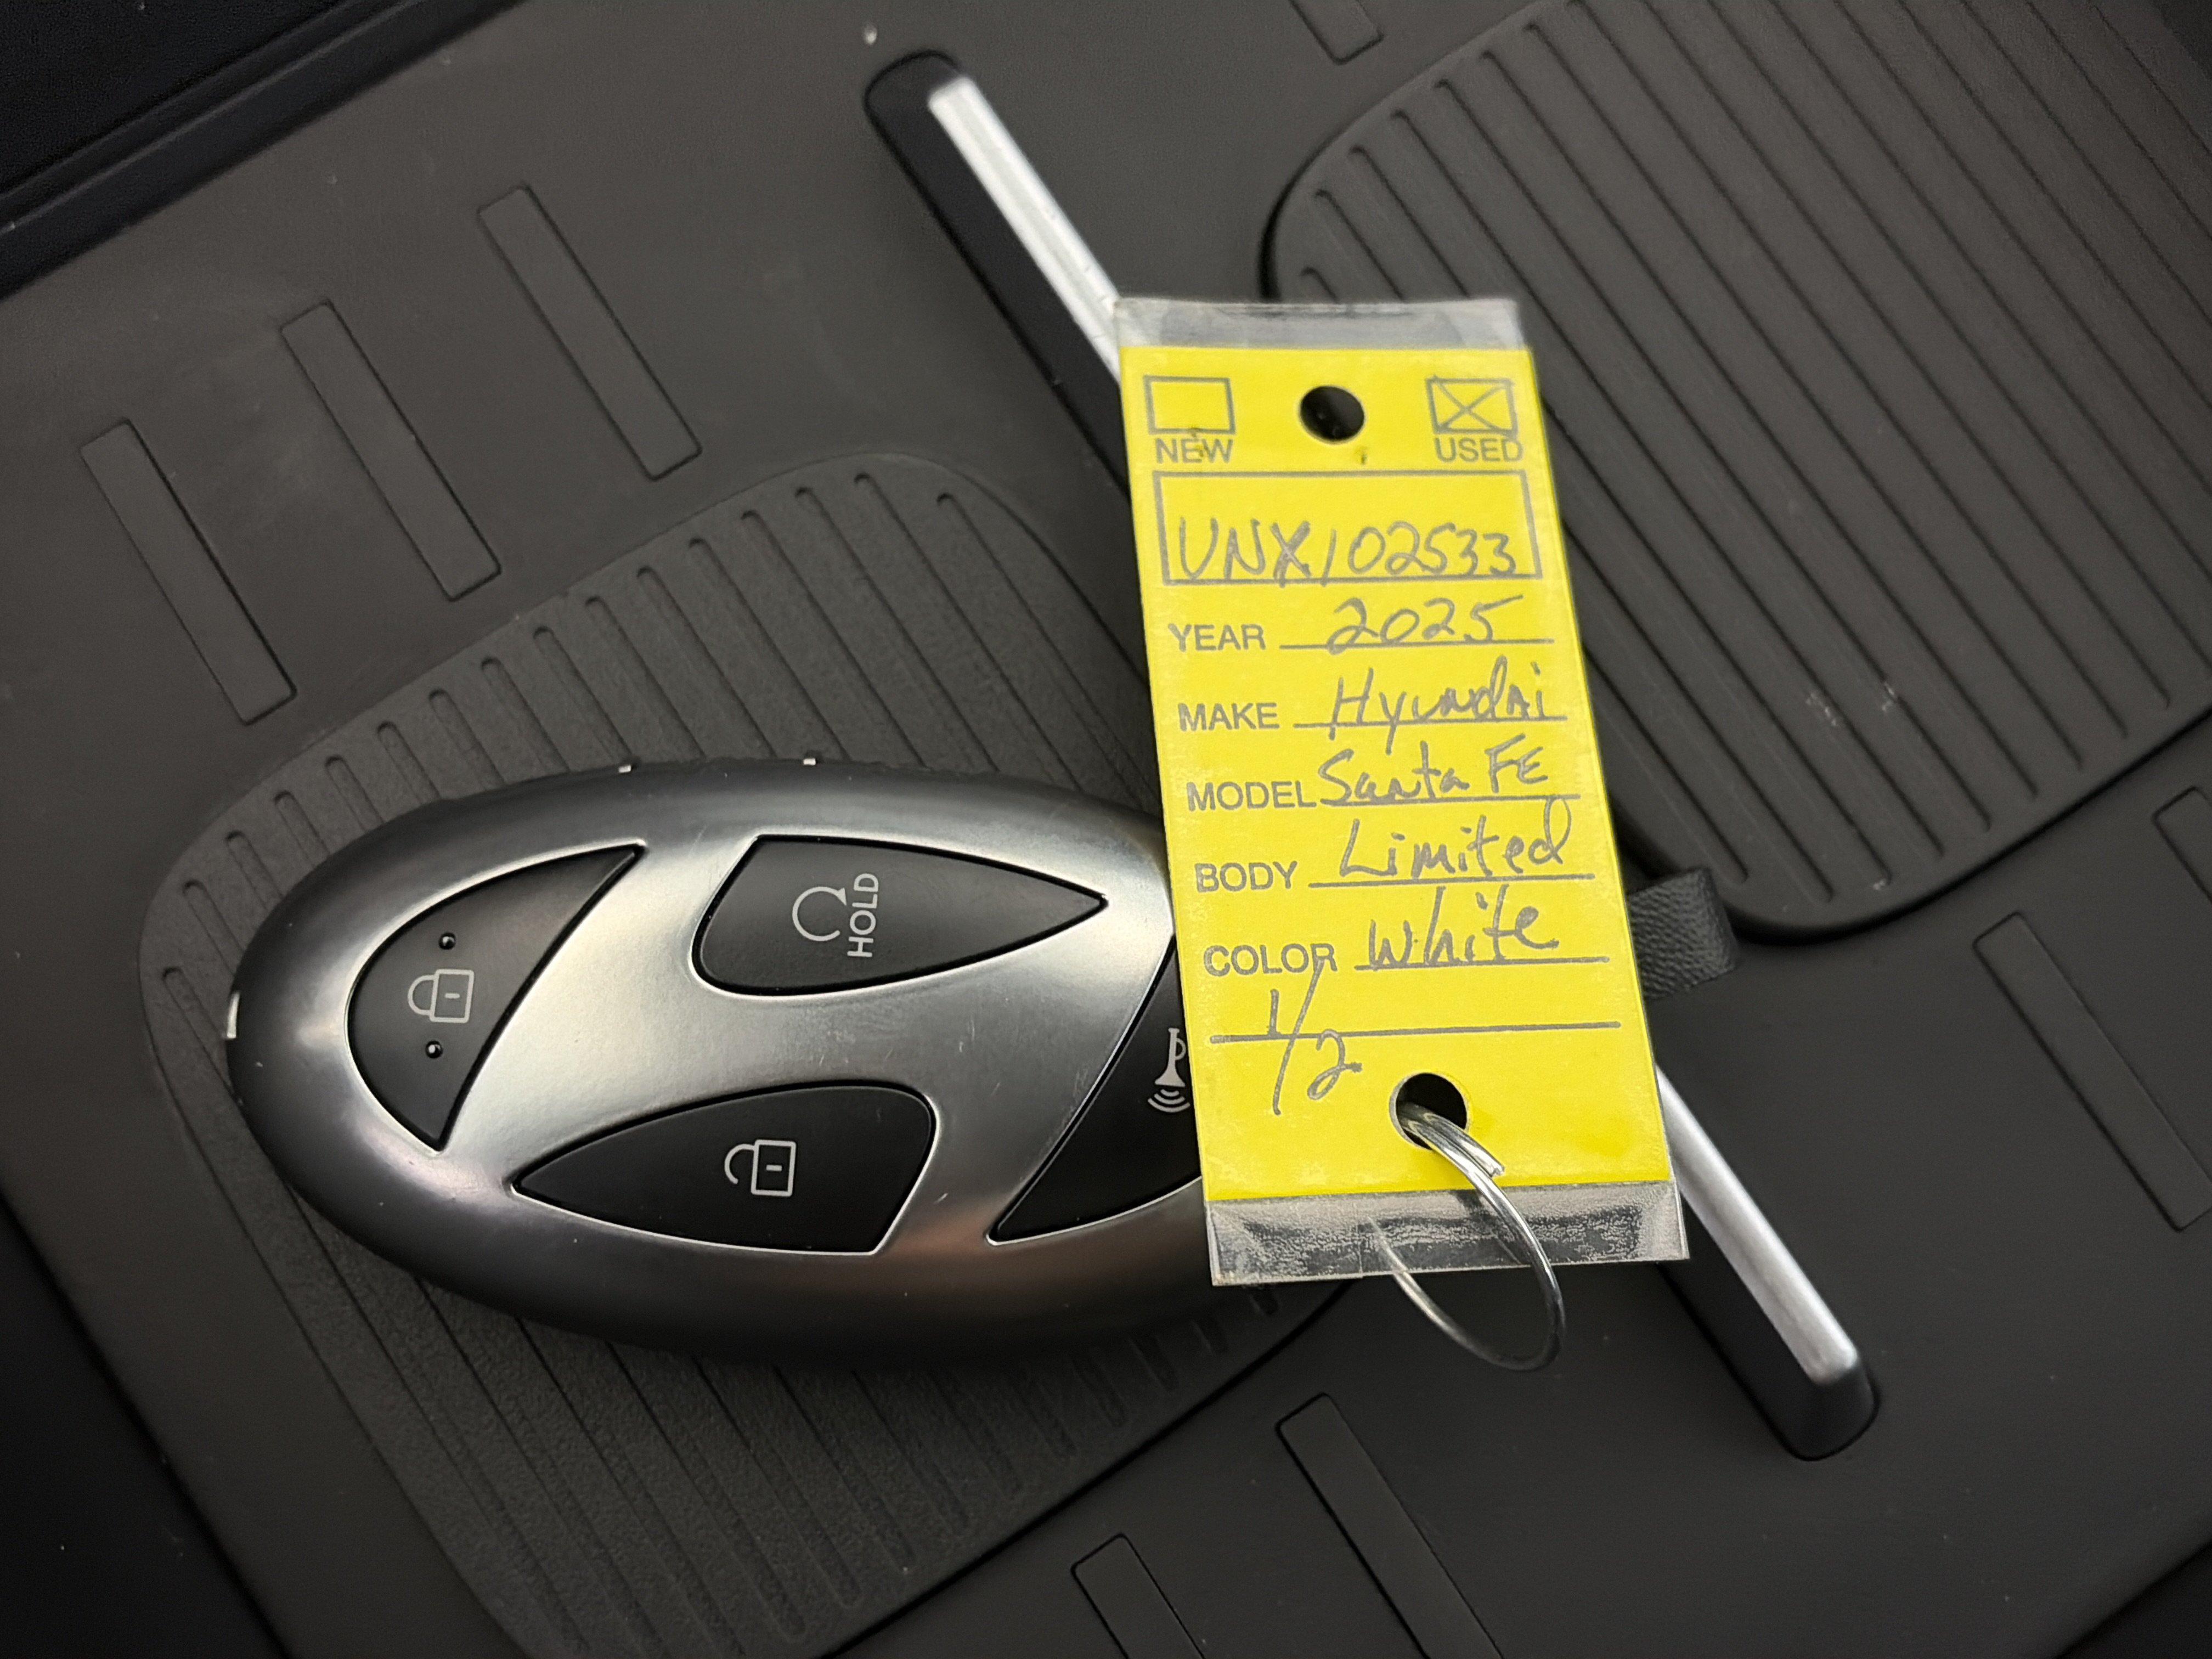 NEW USED
UNX102533
YEAR 2025
MAKE Hyundai
MODEL Santa FE
BODY Limited
COLOR White
1/2
HOLD